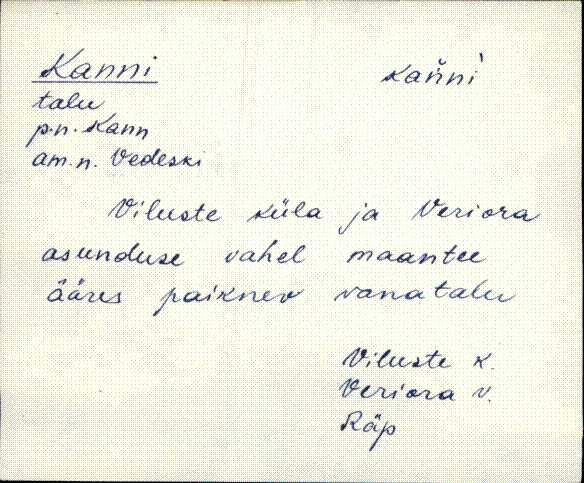 Kanni kan̆nì
talu
p.n. Kann
am.n. Vedeski
Viluste küla ja Veriora
asunduse vahel maantee
ääres paiknev vanatalu
Viluste k.
Veriora v.
Räp